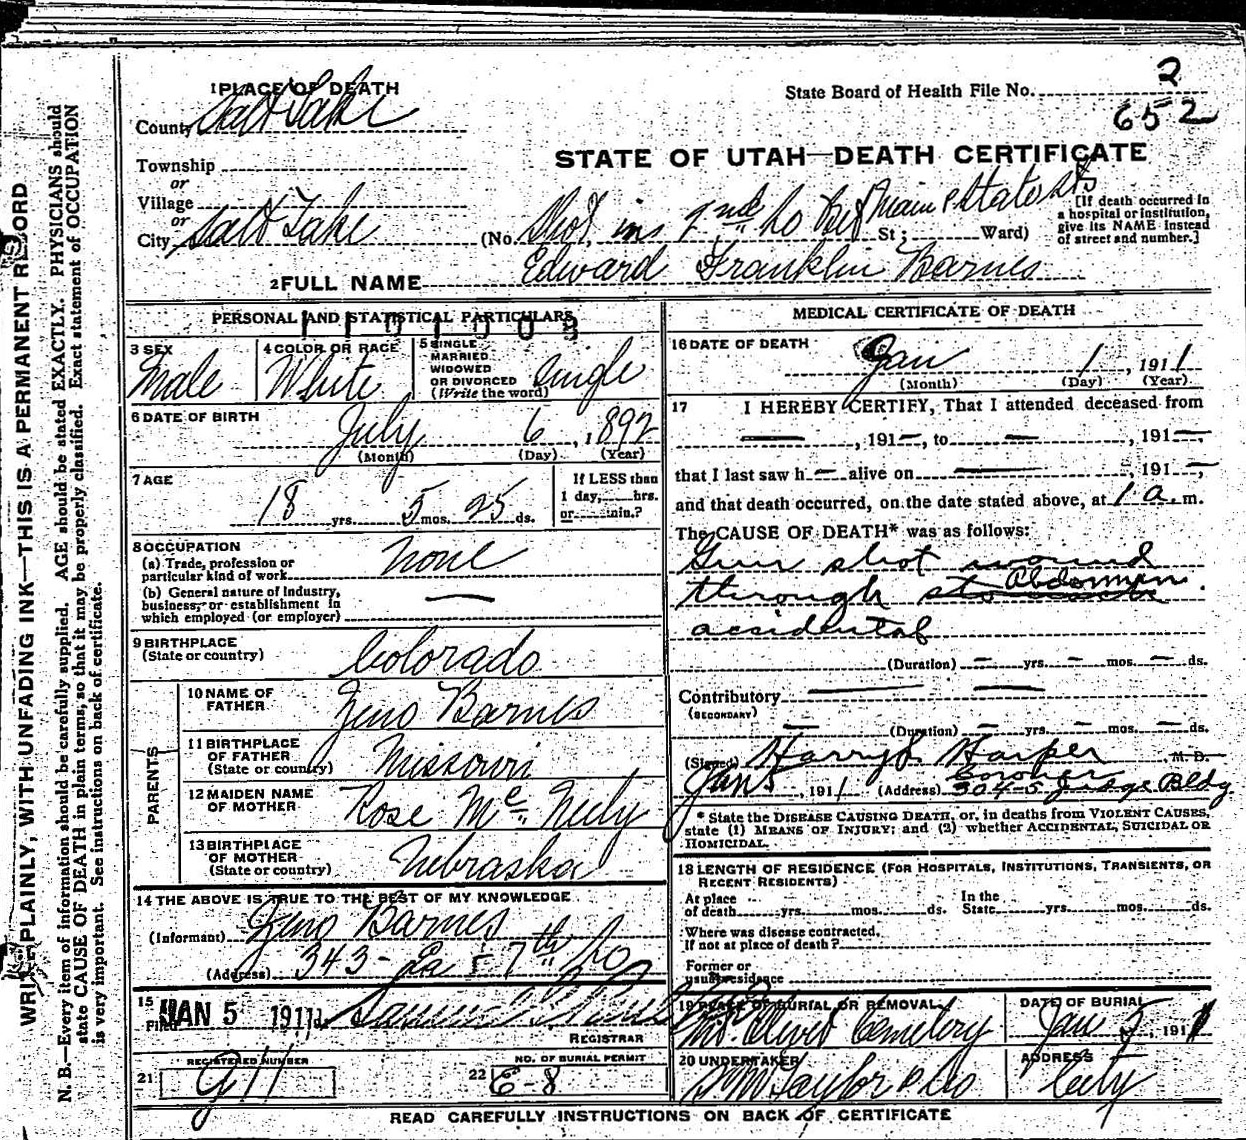 WRITE PLAINLY, WITH UNFADING INK—THIS IS A PERMANENT RECORD
N. B.—Every item of information should be carefully supplied. AGE should be stated EXACTLY. PHYSICIANS should
state CAUSE OF DEATH in plain terms, so that it may be properly classified. Exact statement of OCCUPATION
is very important. See instructions on back of certificate.
1 PLACE OF DEATH
County Salt Lake
Township
or
Village
or
City Salt Lake
State Board of Health File No. 2
652
STATE OF UTAH—DEATH CERTIFICATE
(No. Shot in 2nd So Bet Main & State Sts St; Ward)
[If death occurred in
a hospital or institution,
give its NAME instead
of street and number.]
2 FULL NAME Edward Franklin Barnes
PERSONAL AND STATISTICAL PARTICULARS
1101003
3 SEX
Male
4 COLOR OR RACE
White
5 SINGLE
MARRIED
WIDOWED
OR DIVORCED
(Write the word)
Single
6 DATE OF BIRTH
July 6, 1892
(Month) (Day) (Year)
7 AGE
18 yrs. 5 mos. 25 ds.
If LESS than
1 day, hrs.
or min.?
8 OCCUPATION
(a) Trade, profession or
particular kind of work
None
(b) General nature of Industry,
business, or establishment in
which employed (or employer) —
9 BIRTHPLACE
(State or country)
Colorado
PARENTS
10 NAME OF
FATHER
Zeno Barnes
11 BIRTHPLACE
OF FATHER
(State or country)
Missouri
12 MAIDEN NAME
OF MOTHER
Rose Mc Neely
13 BIRTHPLACE
OF MOTHER
(State or country)
Nebraska
14 THE ABOVE IS TRUE TO THE BEST OF MY KNOWLEDGE
(Informant) Zeno Barnes
(Address) 343- 7th So
15
Filed JAN 5 1911 Samuel
REGISTRAR
REGISTERED NUMBER
21 911
NO. OF BURIAL PERMIT
22 E-8
MEDICAL CERTIFICATE OF DEATH
16 DATE OF DEATH
Jan 1, 1911
(Month) (Day) (Year)
17 I HEREBY CERTIFY, That I attended deceased from
—, 191—, to —, 191—,
that I last saw h— alive on —, 191—,
and that death occurred, on the date stated above, at 1 a. m.
The CAUSE OF DEATH* was as follows:
Gun shot wound
through Abdomen.
accidental
(Duration) — yrs. — mos. — ds.
Contributory — —
(SECONDARY)
— (Duration) — yrs. — mos. — ds.
(Signed) Harry S. Harper M. D.
Coroner
Jan 5, 1911 (Address) 304-5 Judge Bldg
* State the DISEASE CAUSING DEATH, or, in deaths from VIOLENT CAUSES,
state (1) MEANS OF INJURY; and (2) whether ACCIDENTAL, SUICIDAL OR
HOMICIDAL.
18 LENGTH OF RESIDENCE (FOR HOSPITALS, INSTITUTIONS, TRANSIENTS, OR
RECENT RESIDENTS)
At place
of death yrs. mos. ds.
In the
State yrs. mos. ds.
Where was disease contracted,
if not at place of death?
Former or
usual residence
19 PLACE OF BURIAL OR REMOVAL
Mt. Olivet Cemetery
DATE OF BURIAL
Jan 5, 1911
20 UNDERTAKER
S M Taylor & Co
ADDRESS
City
READ CAREFULLY INSTRUCTIONS ON BACK OF CERTIFICATE